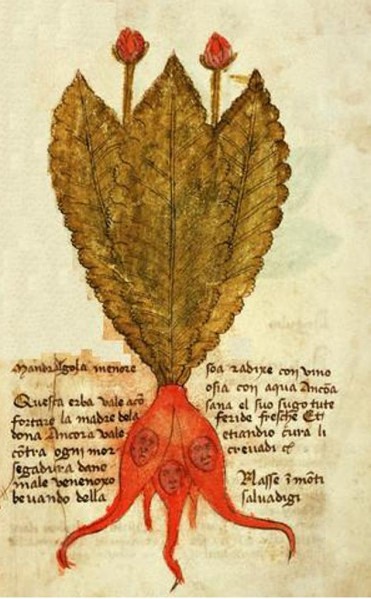 Mandragola menore
Questa erba vale aco
fortare la madre dela
dona Ancora vale
cõtra ogni mor
segadura dano
male venenoxo
bevando della
soa radixe con vino
osia con aqua Ancõa
sana el suo sugo tute
feride fresche Et
etiandio cura li
crevadi
Nasse ĩ mõti
salvadigi